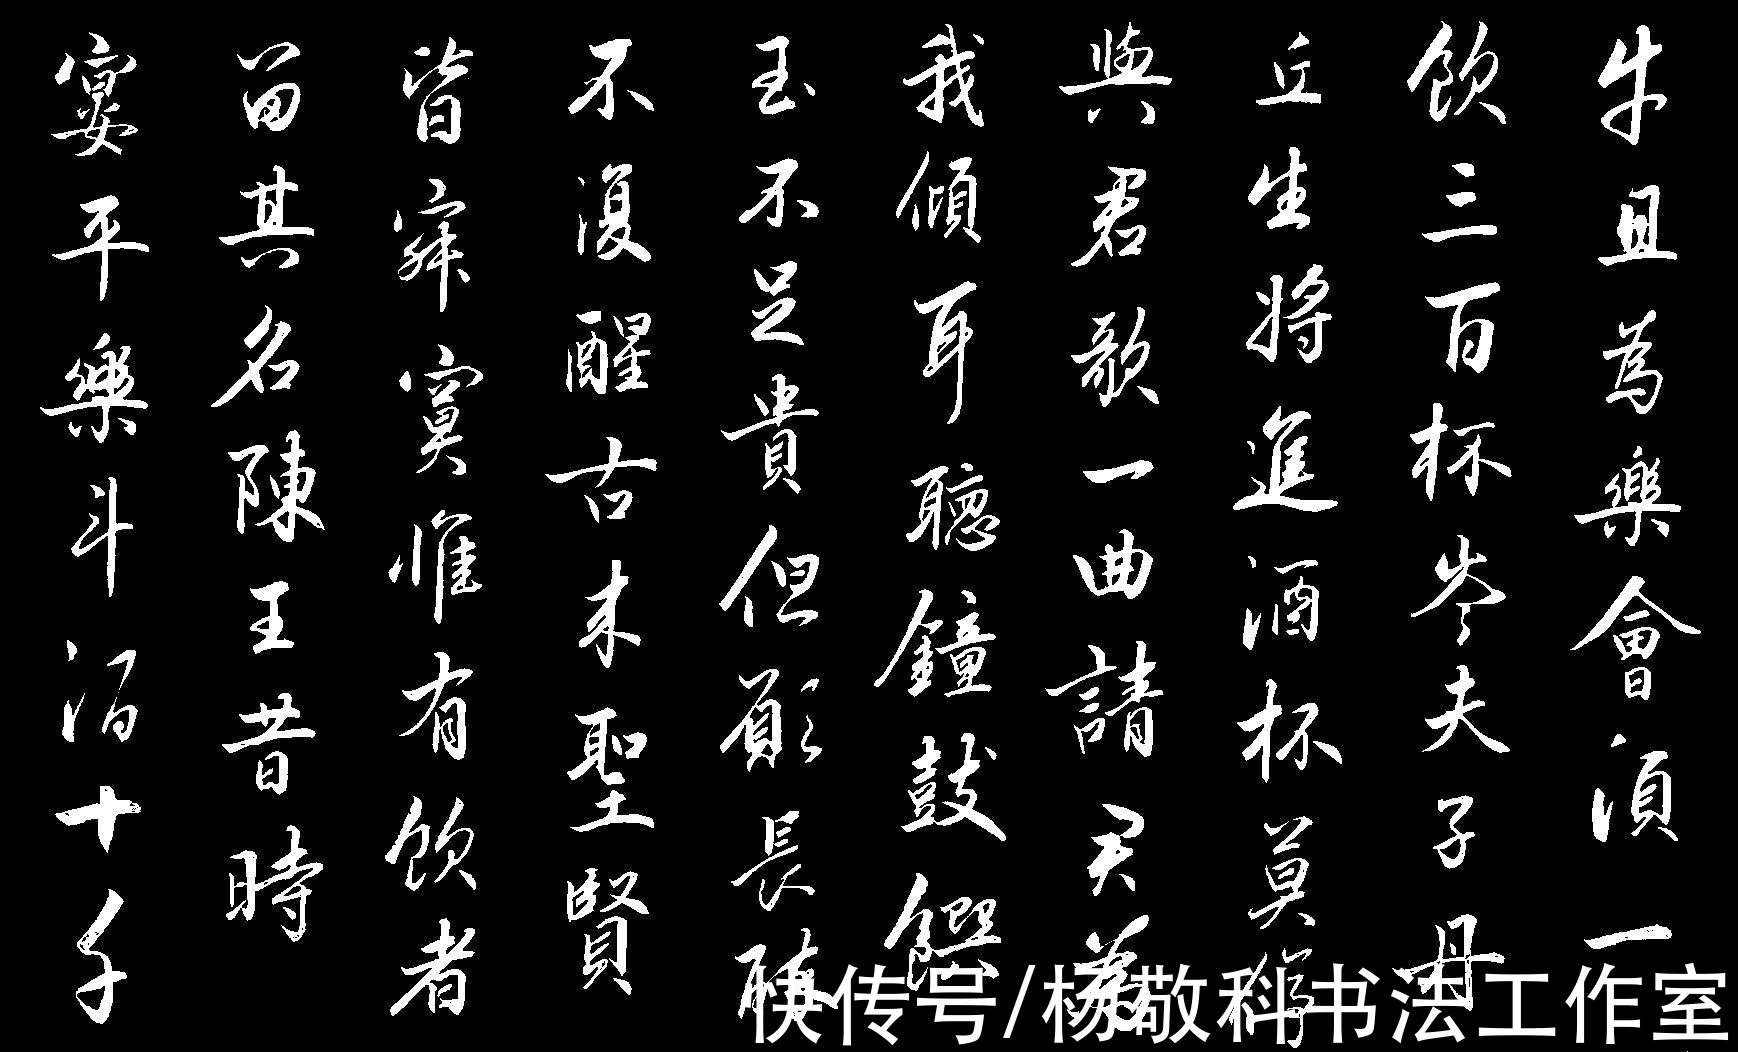 牛且為樂會須一
飲三百杯岑夫子丹
丘生將進酒杯莫停
與君歌一曲請君為
我傾耳聽鐘鼓饌
玉不足貴但願長醉
不復醒古來聖賢
皆寂寞惟有飲者
留其名陳王昔時
宴平樂斗酒十千
快传号/杨敬科书法工作室